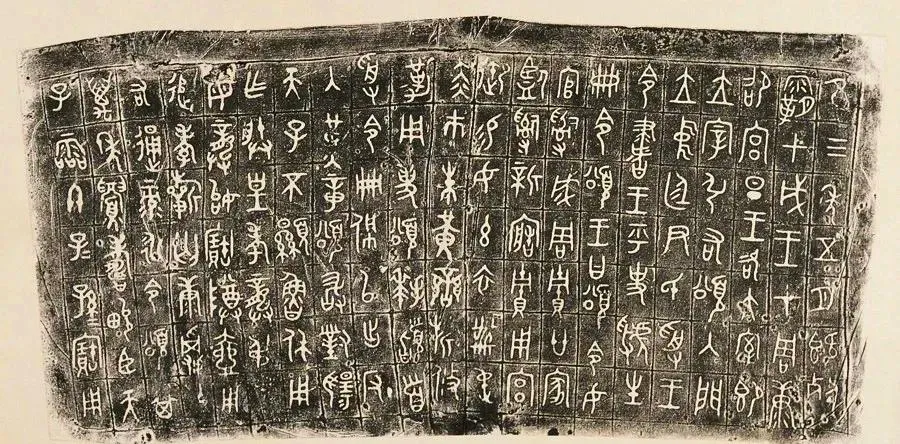 隹三年五月既死
霸甲戌王才周康
卲宮旦王各大室即
立宰引右頌入門
立中廷尹氏受王
令書王乎史虢生
冊令頌王曰頌令女
官𤔲成周貯廿家
監𤔲新造貯用宮
御易女玄衣黹屯
赤巿朱黃鑾旂攸
勒用事頌拜𩒨首
受令冊佩以出反
入堇章頌敢對揚
天子不顯魯休用
乍朕皇考龏弔皇
母龏姒寶尊壺用
追孝祈匃康𩃬屯
右通彔永令頌其
萬年眉壽畯臣天
子霝冬子孫寶用